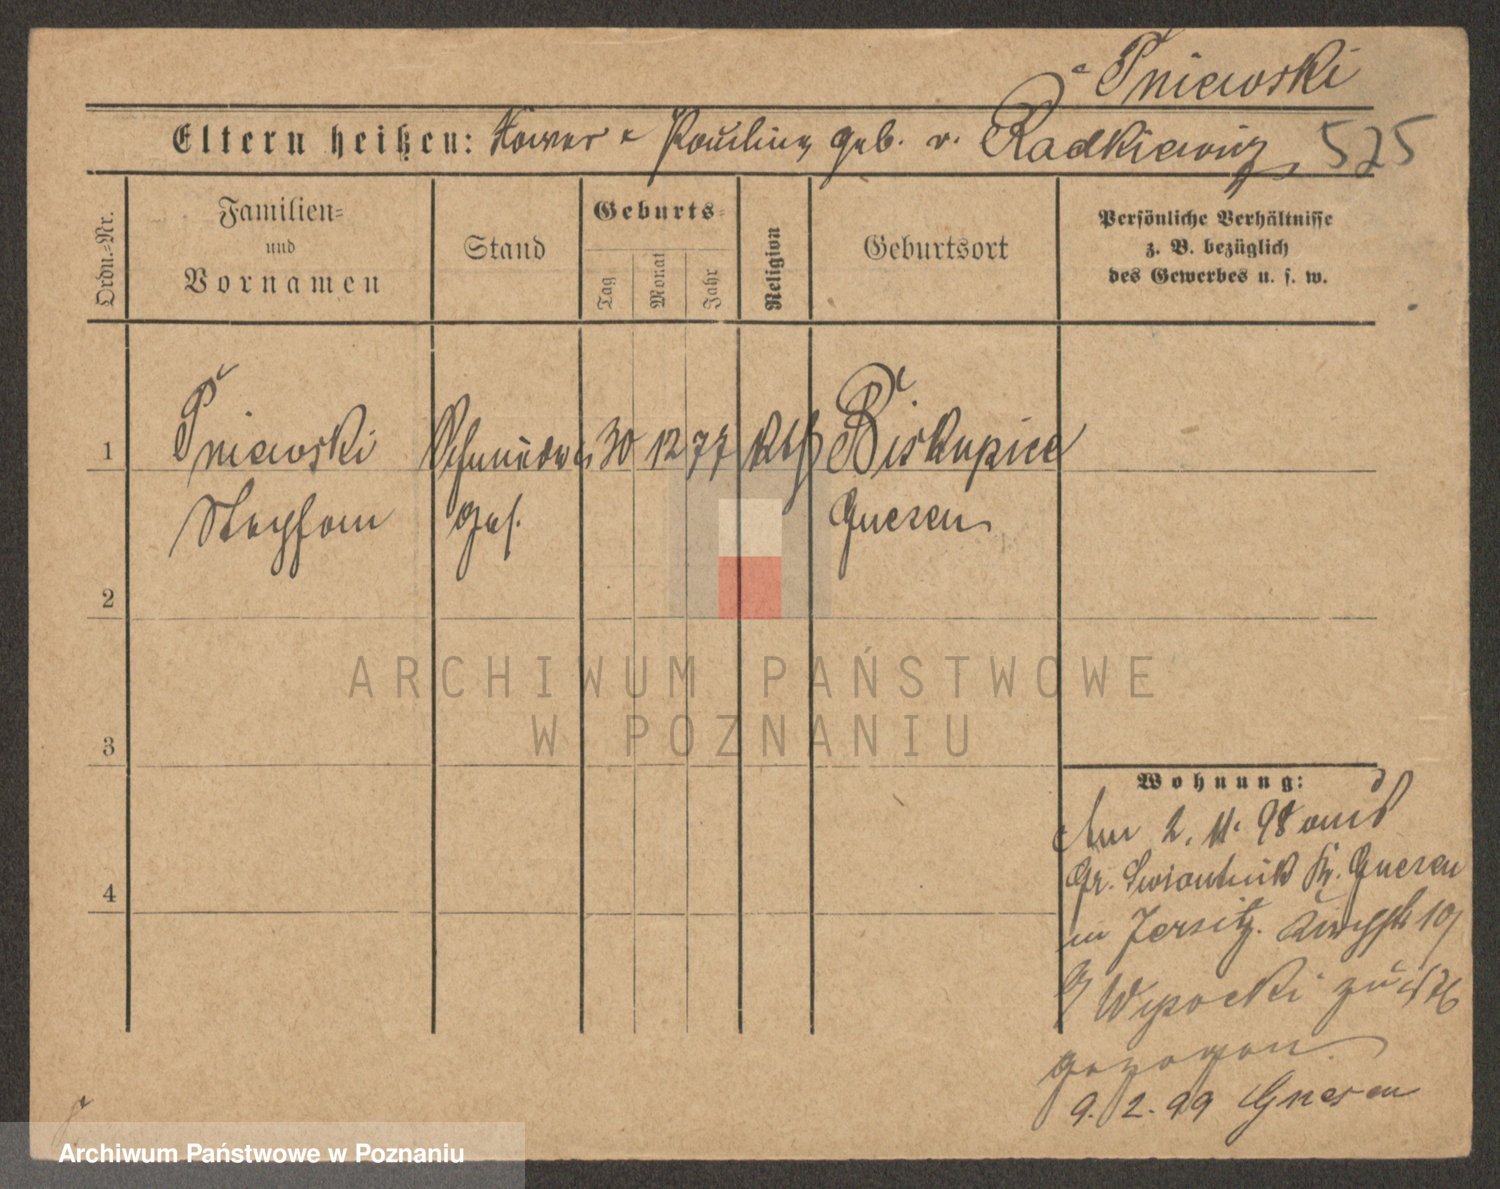 Pniewski
Eltern heißen: Xaver u Pauline geb. v. Radkiewicz 525
Ordn.-Nr.
Familien-
und
Vornamen
Stand
Geburts-
Tag
Monat
Jahr
Religion
Geburtsort
Persönliche Verhältnisse
z. B. bezüglich
des Gewerbes u. s. w.
1 Pniewski 30 12 77 kth Biskupice
Stephan Ges. Gnesen
2
3
4
ARCHIWUM PAŃSTWOWE
W POZNANIU
Wohnung:
Am 2. 11. 98 aus
Gr. Swiantnik Kr. Gnesen
in Jersitz. Kirchstr 19
b/ Wysocki
gezogen.
9. 2. 99 Gnesen
Archiwum Państwowe w Poznaniu